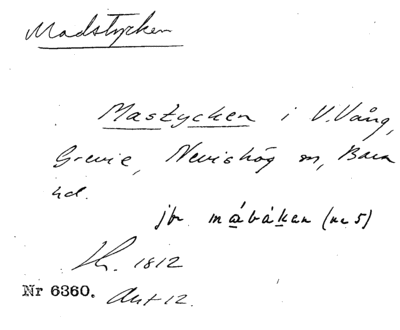 Madstycken
Mastycken i V. Vång,
Grevie, Nevishög sn, Bara
hd.
jfr mábáken (nr 5)
1812
Nr 6360. Ant 12.